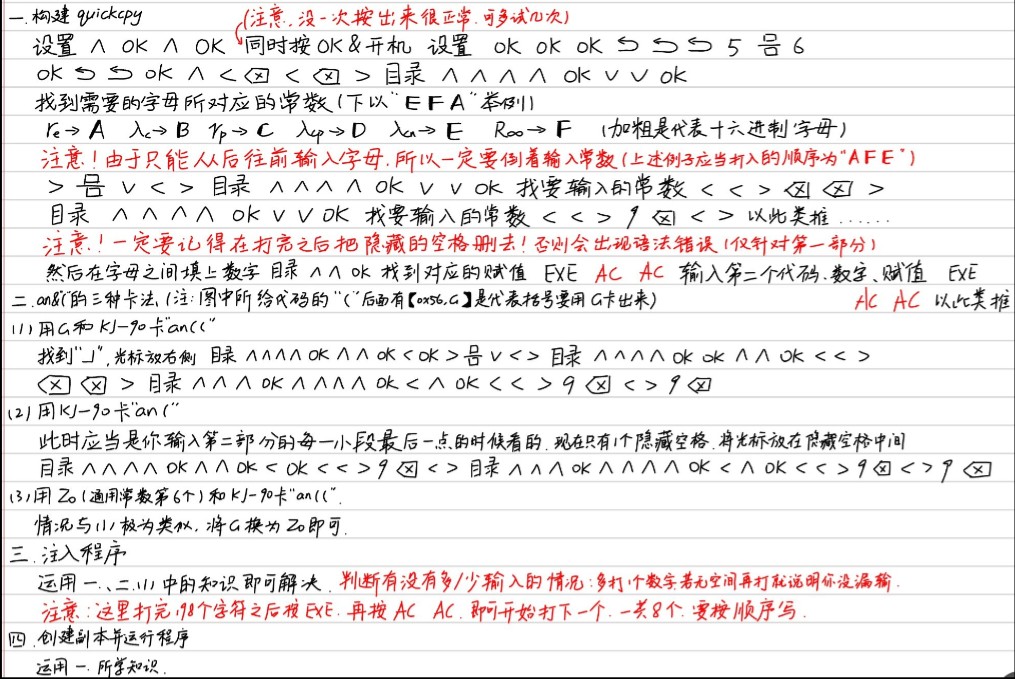 一.构建 quickcpy (注意,没一次按出来很正常.可多试几次)
设置 ∧ OK ∧ OK 同时按OK&开机 设置 OK OK OK ⮌ ⮌ ⮌ 5 号 6
OK ⮌ ⮌ OK ∧ < ⌫ < ⌫ > 目录 ∧ ∧ ∧ ∧ OK ∨ ∨ OK
找到需要的字母所对应的常数(下以"EFA"举例)
re→A λc→B γp→C λcp→D λcn→E R∞→F (加粗是代表十六进制字母)
注意!由于只能从后往前输入字母.所以一定要倒着输入常数(上述例子应当打入的顺序为"AFE")
> 号 ∨ < > 目录 ∧ ∧ ∧ ∧ OK ∨ ∨ OK 找要输入的常数 < < > ⌫ ⌫ >
目录 ∧ ∧ ∧ ∧ OK ∨ ∨ OK 找要输入的常数 < < > 9 ⌫ < > 以此类推......
注意!一定要记得在打完之后把隐藏的空格删去!否则会出现语法错误(仅针对第一部分)
然后在字母之间填上数字 目录 ∧ ∧ OK 找到对应的赋值 EXE AC AC 输入第二个代码.数字、赋值 EXE
AC AC 以此类推
二.an&("的三种卡法,(注:图中所给代码的"("后面有【0x56,G】是代表括号要用G卡出来)
(1)用G和KJ-90卡"an(("
找到"⅃",光标放右侧 目录 ∧∧∧∧ OK ∧ ∧ OK < OK > 号 ∨ < > 目录 ∧ ∧ ∧ ∧ OK OK ∧ ∧ OK < < >
⌫ ⌫ > 目录 ∧ ∧ ∧ OK ∧ ∧ ∧ ∧ OK < ∧ OK < < > 9 ⌫ < > 9 ⌫
(2)用KJ-90卡"an("
此时应当是你输入第二部分的每一小段最后一点的时候看的.现在只有1个隐藏空格.将光标放在隐藏空格中间
目录 ∧ ∧ ∧ ∧ OK ∧ ∧ OK < OK < < > 9 ⌫ < > 目录 ∧ ∧ ∧ OK ∧ ∧ ∧ ∧ OK < ∧ OK < < > 9 ⌫ < > 9 ⌫
(3)用Z0(通用常数第6个)和KJ-90卡"an((".
情况与(1)极为类似.将G换为Z0即可.
三.注入程序
运用一、二.(1)中的知识即可解决.判断有没有多/少输入的情况:多打1个数字.若无空间再打就说明你没漏输.
注意:这里打完198个字符之后按EXE.再按AC AC.即可开始打下一个.一共8个.要按顺序写.
四.创建副本并运行程序
运用一.所学知识.